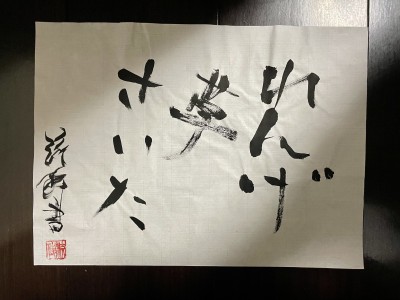 れんげ
草
さいた